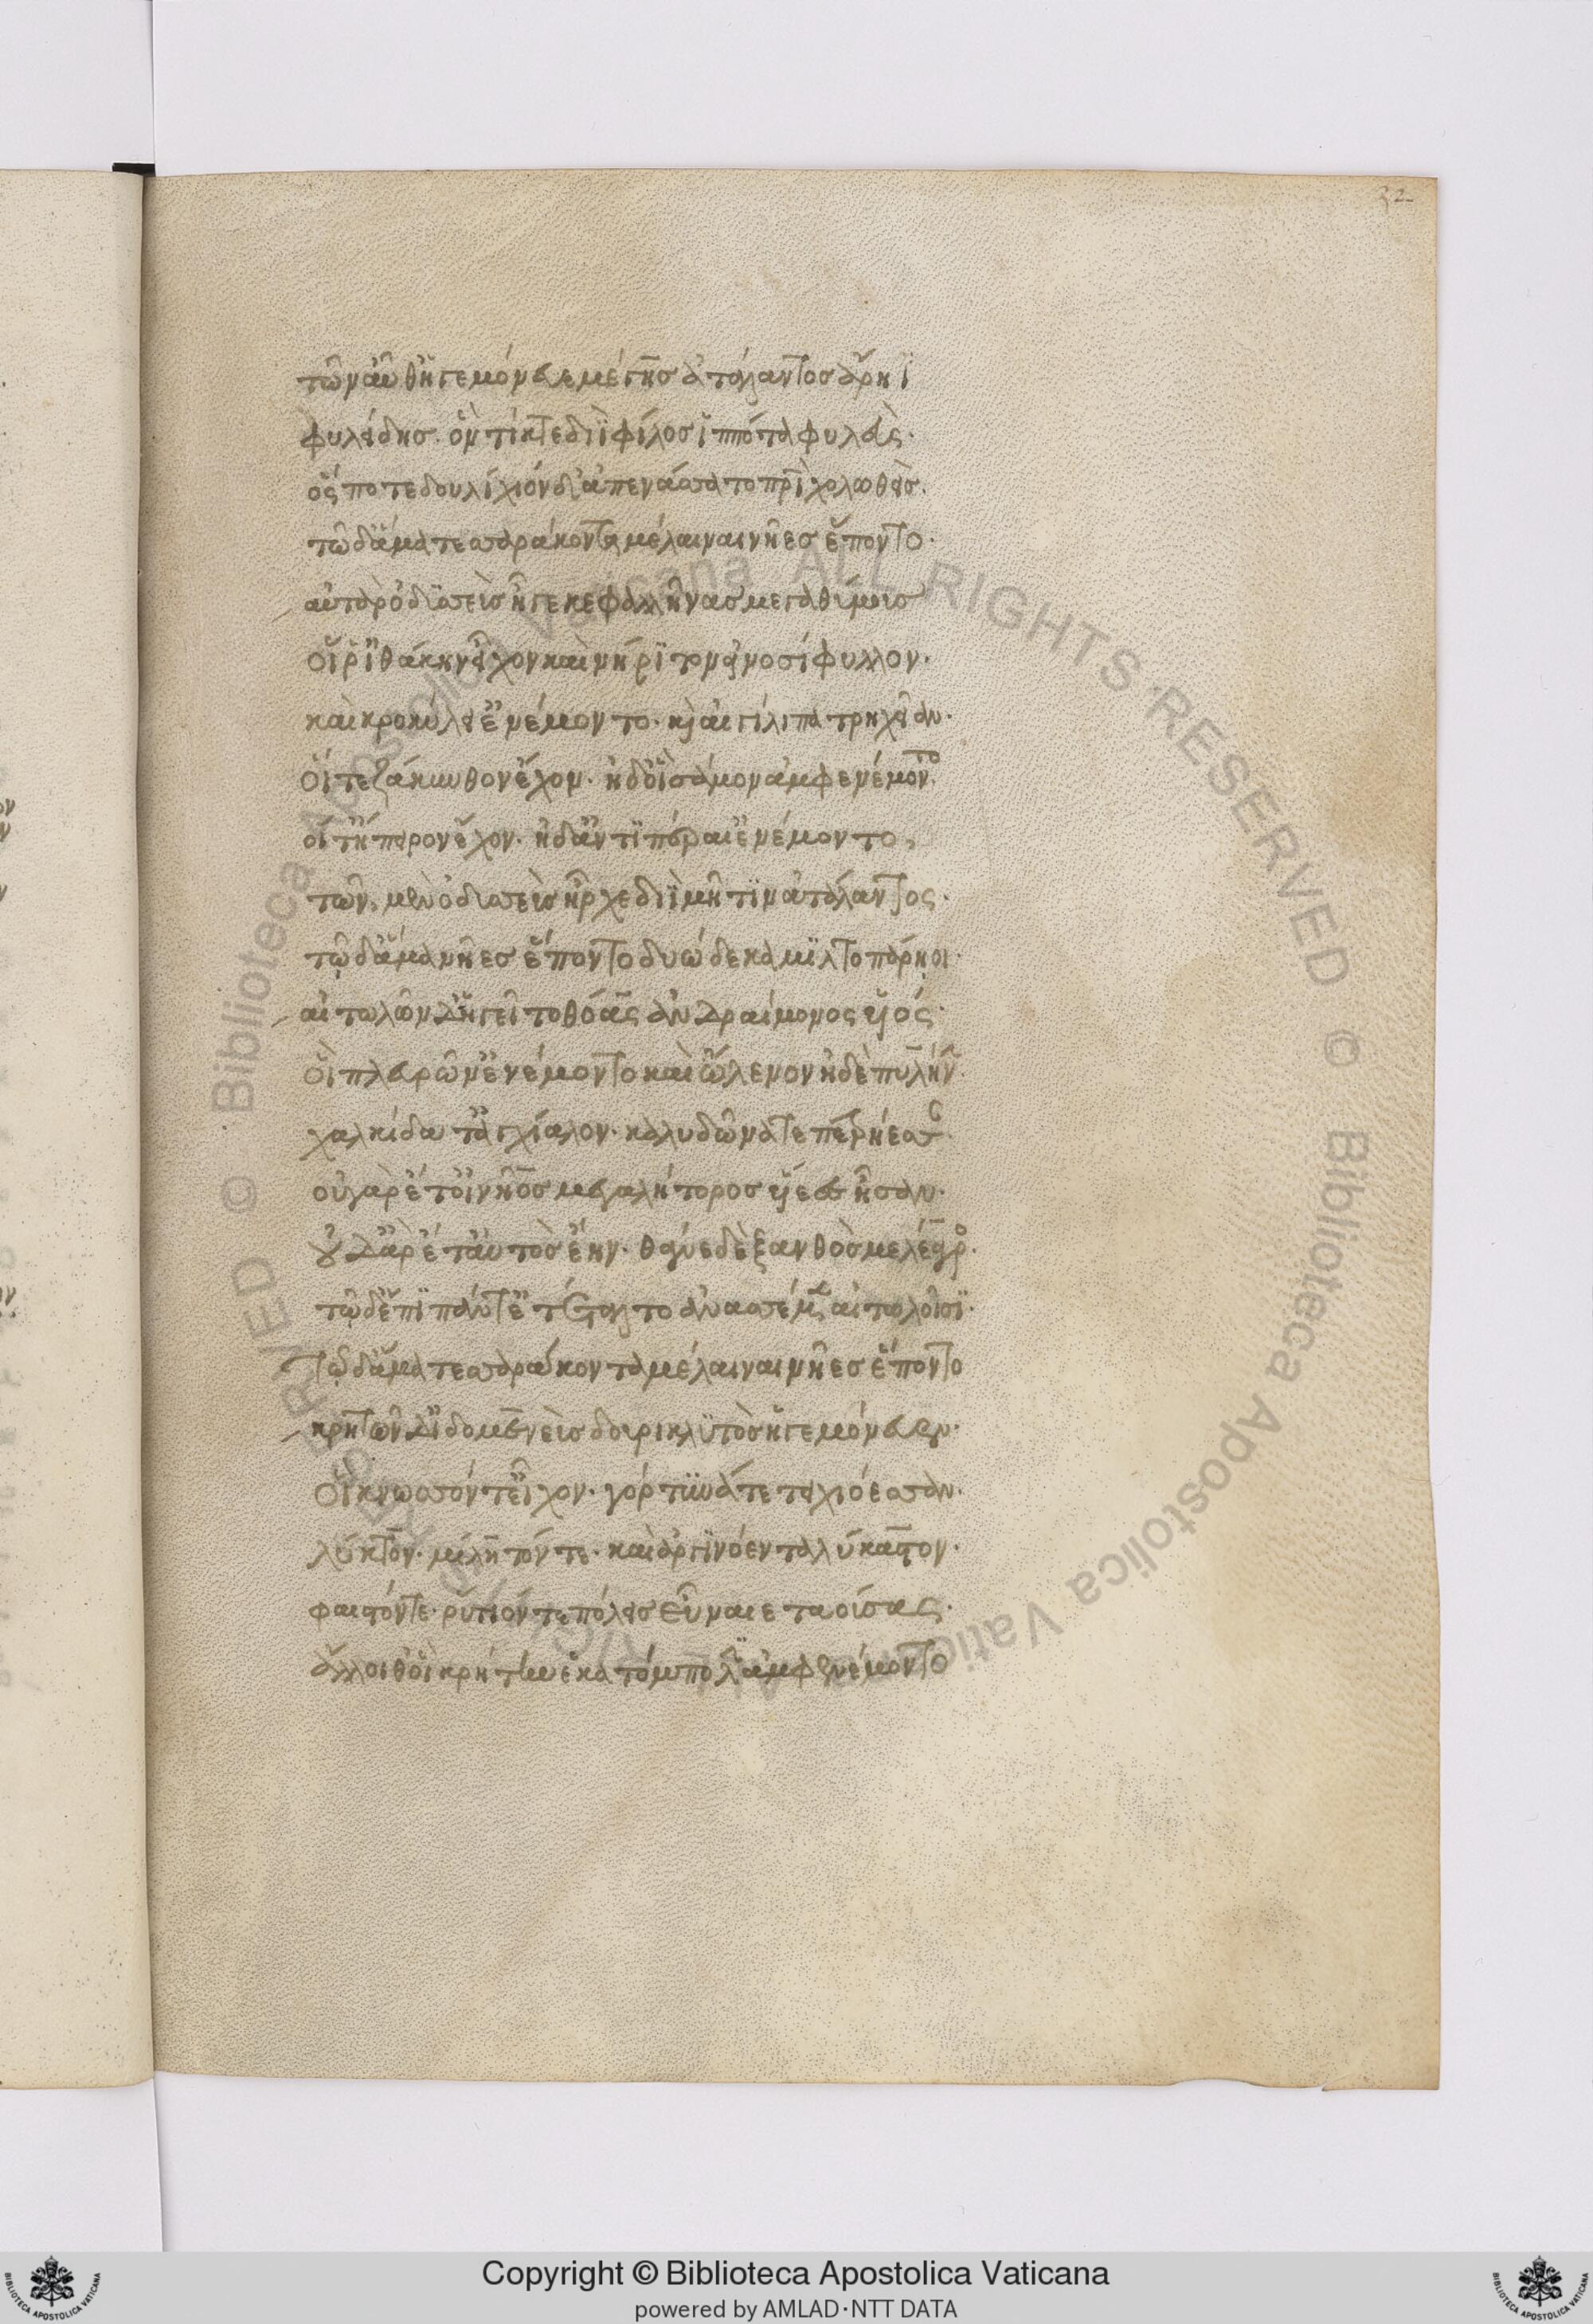 32
τῶν αὖθ ἡγεμόνευε μέγης ἀτάλαντος ἄρηϊ
φυλείδης. ὃν τίκτε διῒ φίλος ἱππότα φυλεύς.
ὅς ποτε δουλίχιόνδ ἀπενάσσατο πατρὶ χολωθείς.
τῶ δ ἅμα τεσσαράκοντα μέλαιναι νῆες ἕποντο.
αὐτὰρ ὀδυσσεὺς ἦγε κεφαλλῆνας μεγαθύμους
οἵ ῥ ἰθάκην εἶχον καὶ νήριτον εἰνοσίφυλλον.
καὶ κροκύλει ἐνέμοντο. κ αἰγίλιπα τρηχεῖαν.
οἵ τε ζάκυνθον ἔχον. ἠδ οἳ σάμον ἀμφενέμοντο
οἵ τ ἤπειρον ἔχον. ἠδ ἀντιπέραι ἐνέμοντο,
τῶν μὲν ὀδυσσεὺς ἦρχε διῒ μῆτιν ἀτάλαντος.
τῷ δ ἅμα νῆες ἕποντο δυώδεκα μιλτοπάρῃοι.
αἰτωλῶν δ ἡγεῖτο θόας ἀνδραίμονος υἱός.
οἳ πλευρῶν ἐνέμοντο καὶ ὤλενον ἠδὲ πυλήνην.
χαλκίδα τ ἀγχίαλον. καλυδῶνά τε πετρήεσσαν.
οὐ γὰρ ἔτ οἰνῆος μεγαλήτορος υἱέες ἦσαν.
οὐδ ἄρ ἔτ αὐτὸς ἔην. θάνε δὲ ξανθὸς μελέαγρος.
τῷ δ ἐπὶ πάντ ἐτέταλτο ἀνασσέμεν αἰτωλοῖσι.
τῷ δ ἅμα τεσσαράκοντα μέλαιναι νῆες ἕποντο
κρητῶν δ ἰδομενεὺς δουρικλυτὸς ἡγεμόνευεν.
οἳ κνωσσόν τ εἶχον. γόρτυνά τε τειχιόεσσαν.
λύκτον. μίλητόν τε. καὶ ἀργινόεντα λύκαστον.
φαιστόν τε. ῥύτιόν τε πόλεις εὖ ναιεταούσας.
ἄλλοι θ οἳ κρήτην ἑκατόμπολιν ἀμφενέμοντο
Copyright © Biblioteca Apostolica Vaticana
powered by AMLAD·NTT DATA